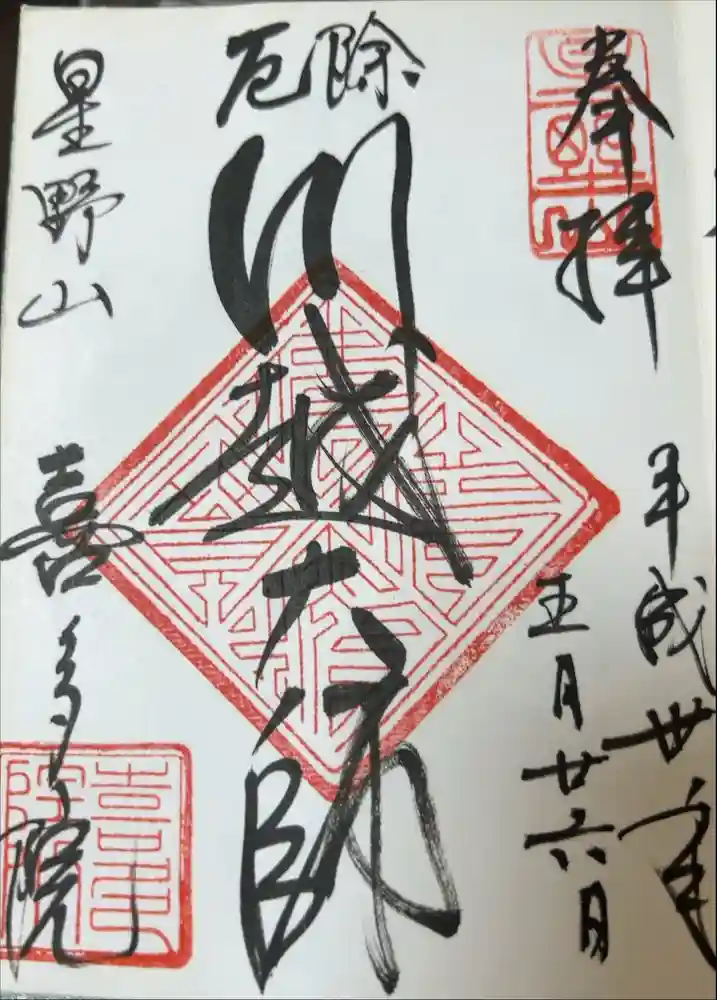 奉拝
平成丗年
五月廿六日
厄除
川越大師
星野山
喜多院
喜多院